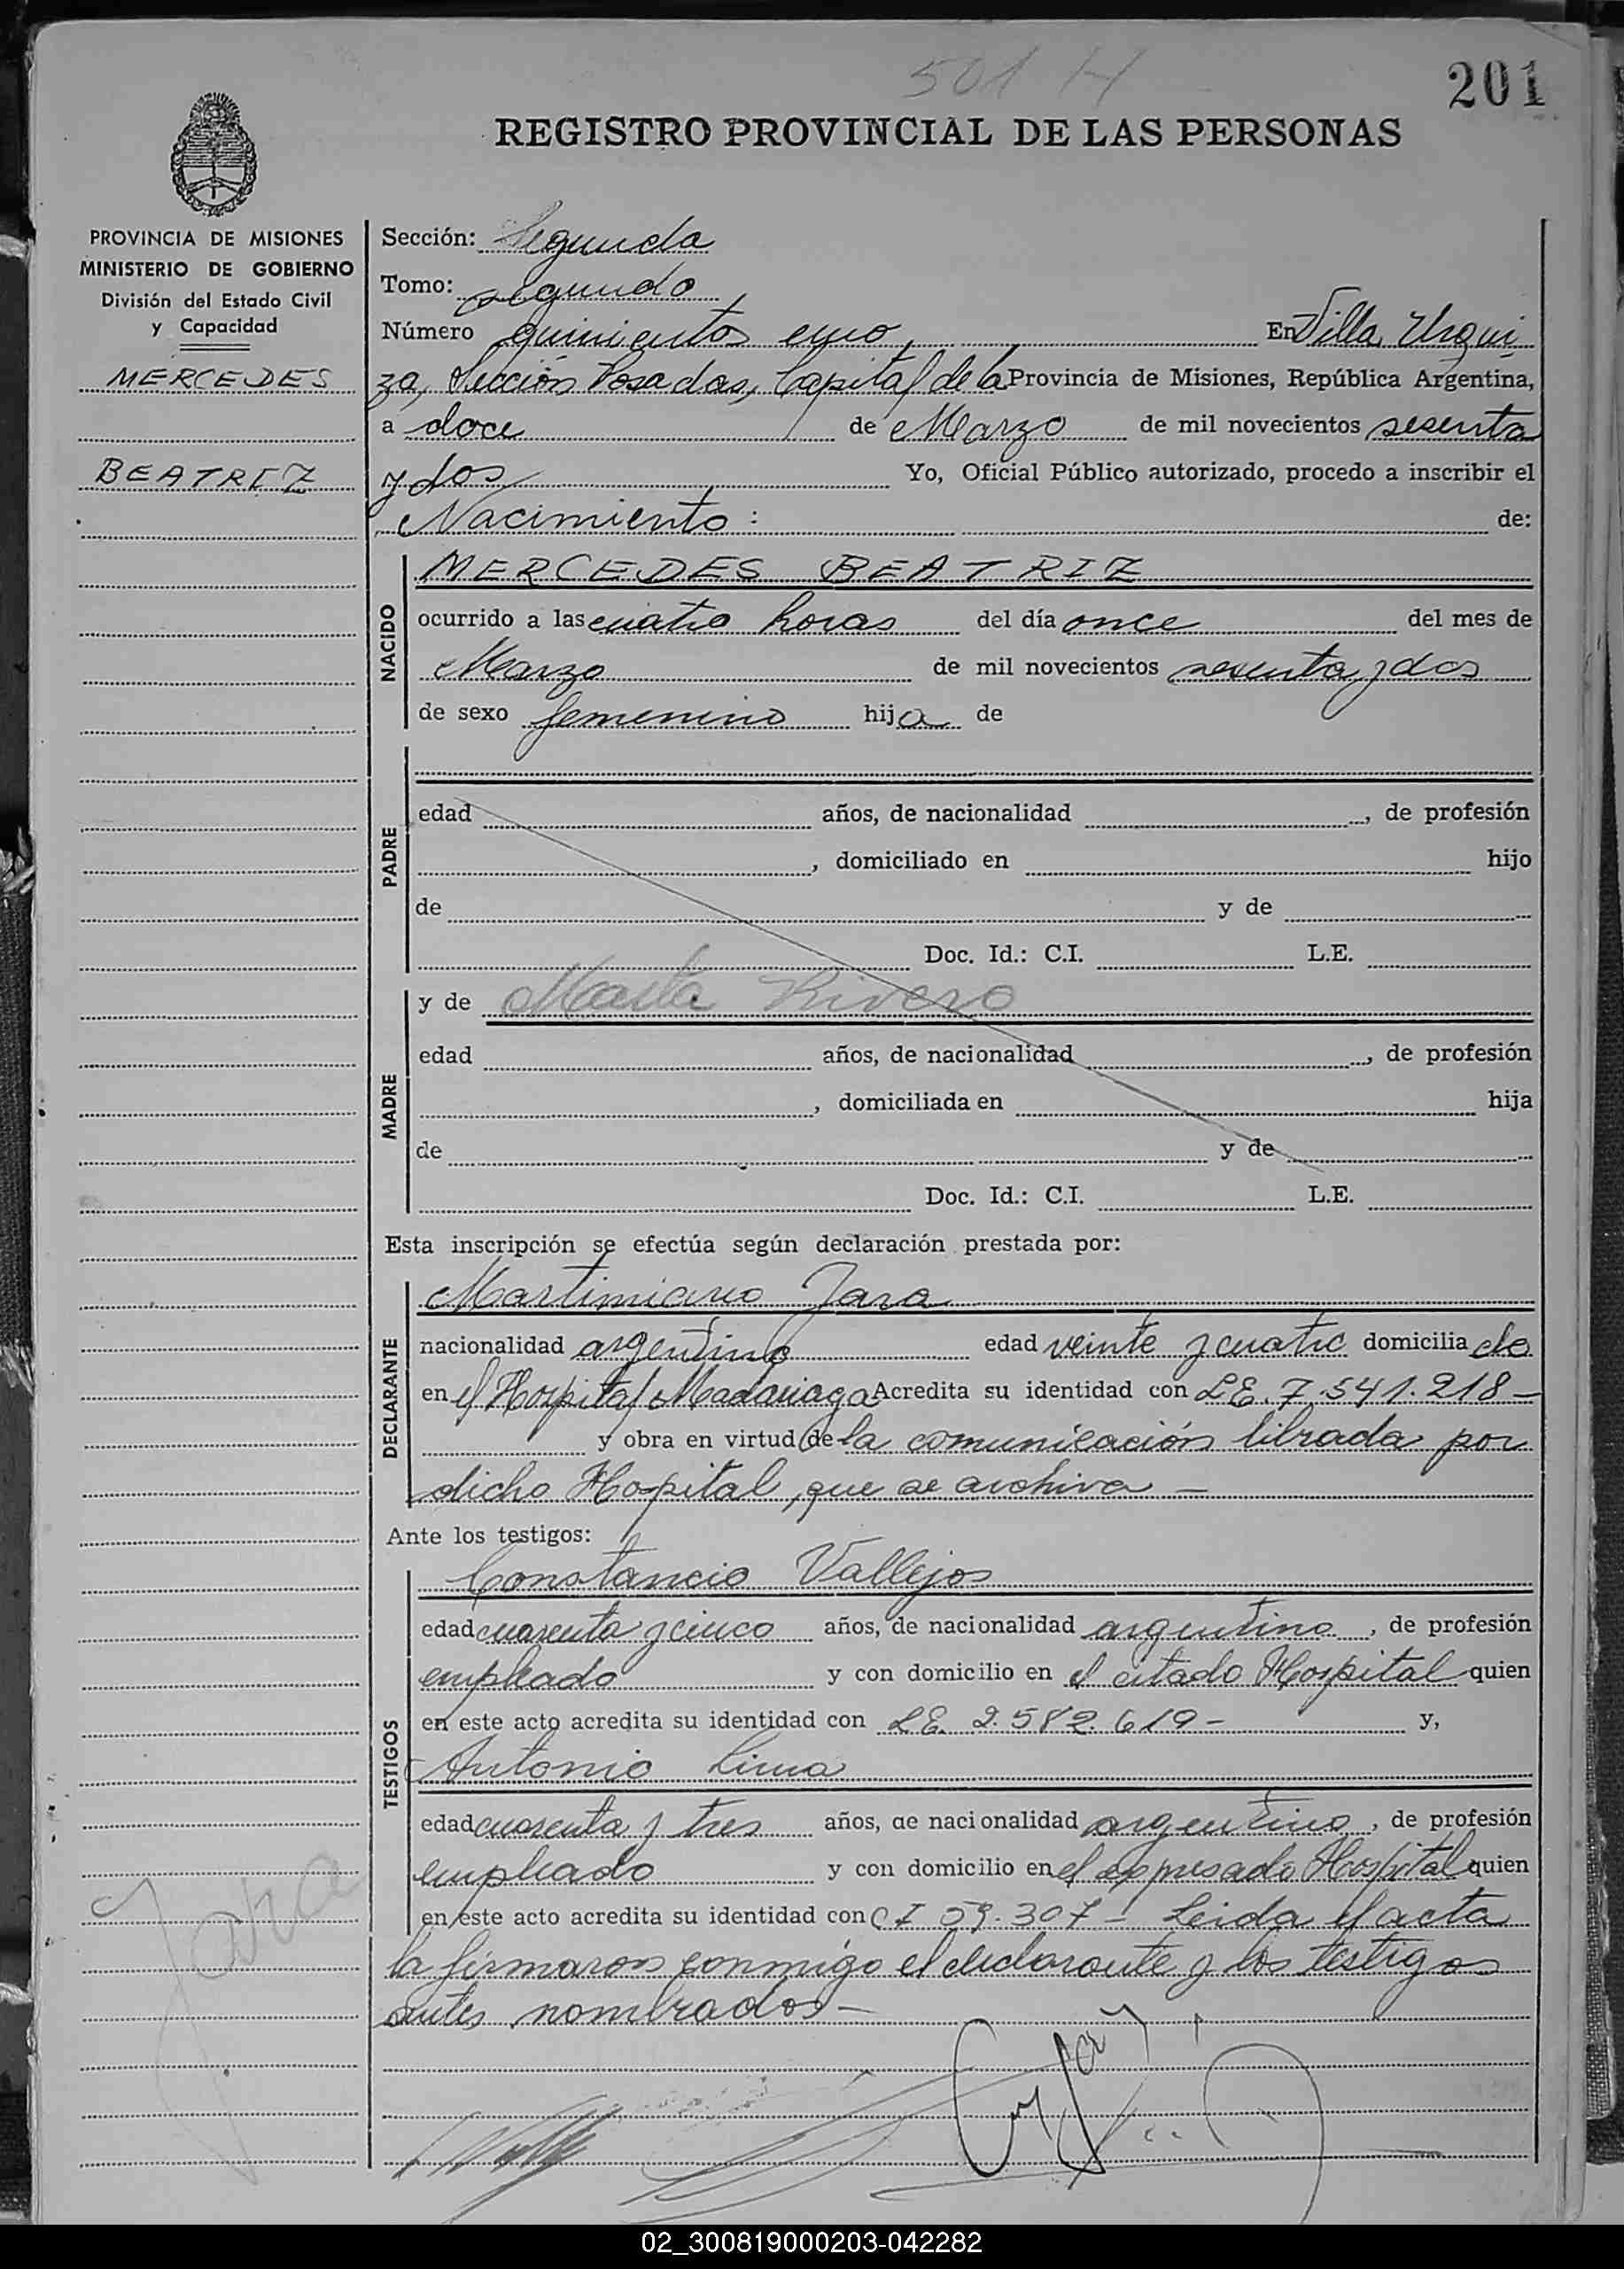 501 H
201
REGISTRO PROVINCIAL DE LAS PERSONAS
PROVINCIA DE MISIONES
MINISTERIO DE GOBIERNO
División del Estado Civil
y Capacidad
MERCEDES
BEATRIZ
Sección: Segunda
Tomo: segundo
Número quinientos uno, En Villa Urqui
za, Sección Posadas, Capital de la Provincia de Misiones, República Argentina,
a doce de Marzo de mil novecientos sesenta
y dos Yo, Oficial Público autorizado, procedo a inscribir el
Nacimiento: de:
NACIDO
MERCEDES BEATRIZ
ocurrido a las cuatro horas del día once del mes de
Marzo de mil novecientos sesenta y dos
de sexo femenino hija de
PADRE
edad años, de nacionalidad , de profesión
, domiciliado en hijo
de y de
Doc. Id.: C.I. L.E.
MADRE
y de Marta Rivero
edad años, de nacionalidad , de profesión
, domiciliada en hija
de y de
Doc. Id.: C.I. L.E.
Esta inscripción se efectúa según declaración prestada por:
DECLARANTE
Martimiano Jara
nacionalidad argentino edad veinte y cuatro domiciliado
en el Hospital Madariaga Acredita su identidad con L.E. 7.541.218-
y obra en virtud de la comunicación librada por
dicho Hospital, que se archiva -
Ante los testigos:
TESTIGOS
Constancio Vallejos
edad cuarenta y cinco años, de nacionalidad argentino, de profesión
empleado y con domicilio en el citado Hospital quien
en este acto acredita su identidad con L.E. 2.582.619- y,
Antonio Lima
edad cuarenta y tres años, de nacionalidad argentino, de profesión
empleado y con domicilio en el expresado Hospital quien
en este acto acredita su identidad con C I 59.307- Leida el acta
la firmaron conmigo el declarante y los testigos
antes nombrados-
Jara
02_300819000203-042282